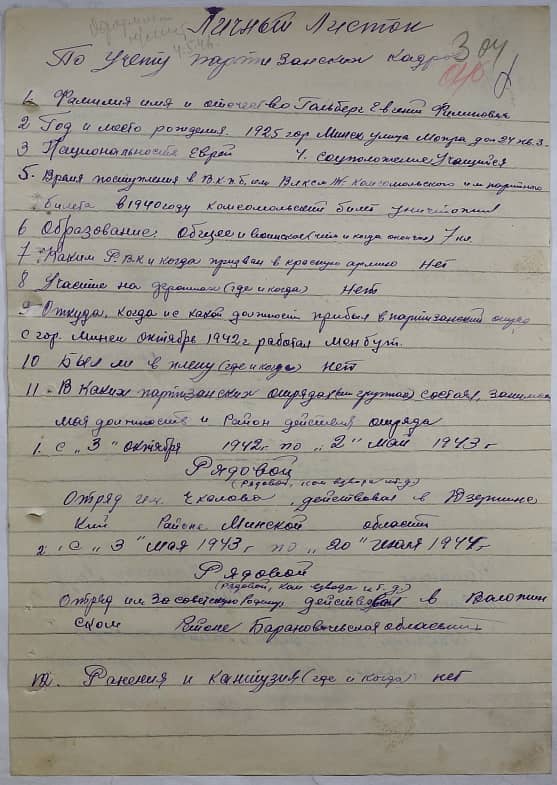 Личный Листок
По Учету партизанских кадров
1 Фамилия имя и отчество Гольберг Евгений Филиппович
2 Год и место рождения. 1925 гор Минск улица Мопра дом 24 кв. 3
3 Национальность Еврей 4. соцположение Учащийся
5. Время поступления в В.К.П.б. или ВЛКСМ. № Комсомольского или партийно
билета в 1940 году комсомольский билет уничтожил
6 Образование: Общее и воинское (что и когда окончил) 7 кл.
7. Каким Р.В.К и когда призван в красную армию Нет
8 Участие на фронтах (где и когда) Нет
9 Откуда, когда и с какой должности прибыл в партизанский отряд
с гор. Минск октябре 1942 г работал
10 Был ли в плену (где и когда) нет
11. В Каких партизанских отрядах (или группах) состоял, занима
мая должность и Район действия отряда
1. с „3" октября 1942 г по „2" май 1943 г
Рядовой
(Рядовой, ком взвода и т.д.)
Отряд им. Чкалова, действовал в Дзержинс
ким Районе Минской области
2. с „3" мая 1943 г по „20" июля 1944 г
Рядовой
(рядовой, ком взвода и т.д.)
Отряд им За советскую родину действовал в Воложин
ском Районе Барановичьской области
12. Ранения и контузия (где и когда) нет